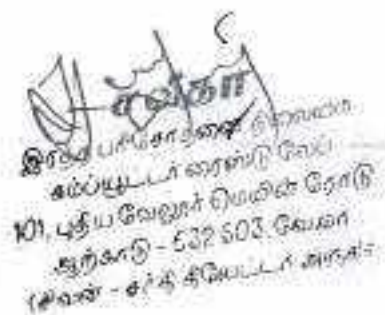 சக்தி
இரத்த பரிசோதனை நிலையம்
கம்ப்யூட்டர் ரைஸ்டு லேப்
101, புதிய வேலூர் மெயின் ரோடு
ஆற்காடு - 632 503. வே.மா
(சிவன் - சக்தி தியேட்டர் அருகில்)